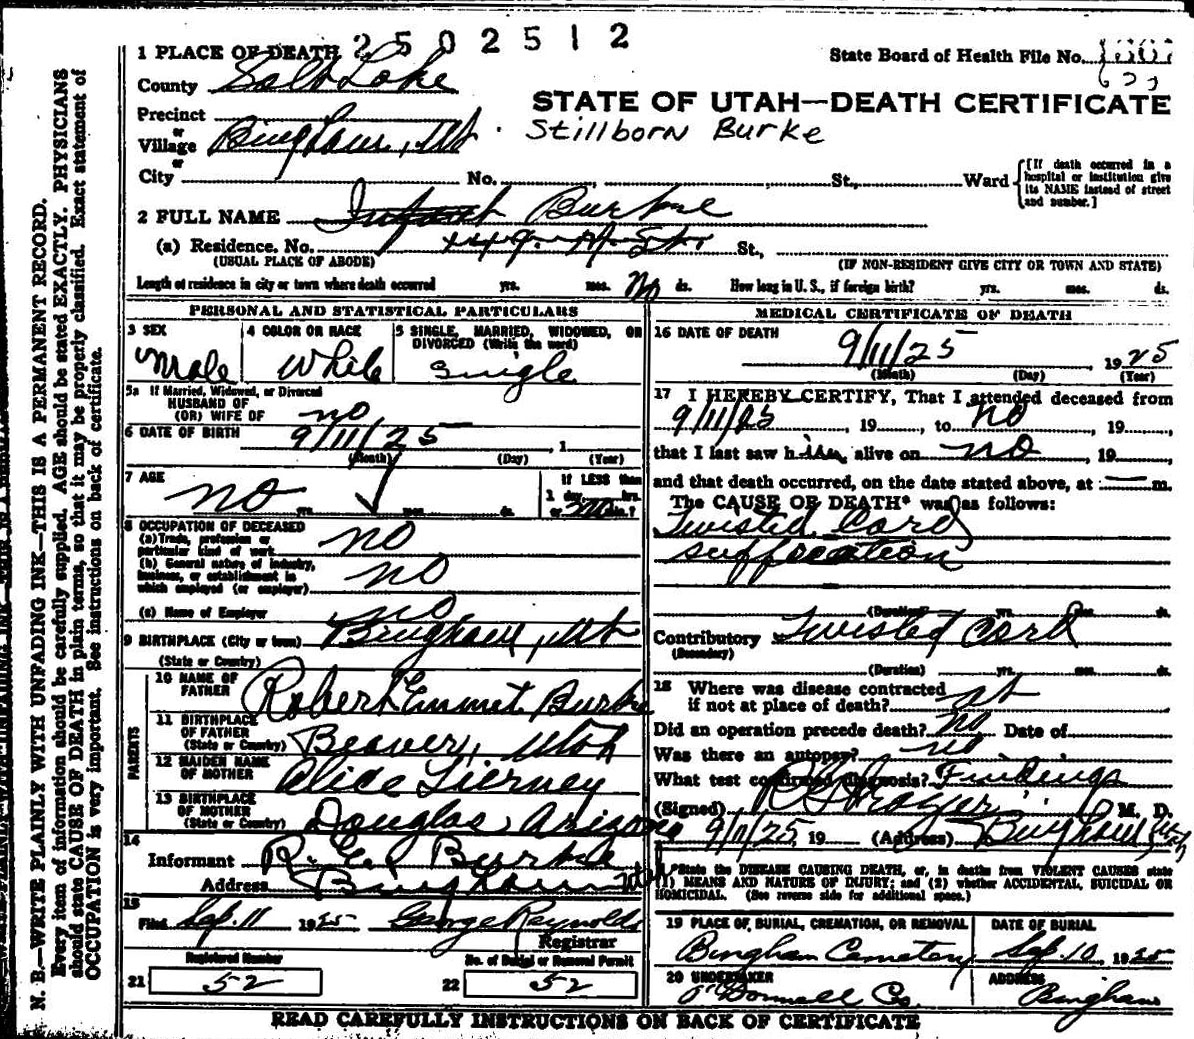 2502512
1 PLACE OF DEATH
State Board of Health File No.
County Salt Lake
STATE OF UTAH—DEATH CERTIFICATE
Precinct
Stillborn Burke
or
Village Bingham, Ut.
or
City No. St., Ward
[If death occurred in a hospital or institution give its NAME instead of street and number.]
2 FULL NAME Infant Burke
(a) Residence. No. St.,
(USUAL PLACE OF ABODE) (IF NON-RESIDENT GIVE CITY OR TOWN AND STATE)
Length of residence in city or town where death occurred yrs. mos. No ds. How long in U. S., if foreign birth? yrs. mos. ds.
PERSONAL AND STATISTICAL PARTICULARS
3 SEX 4 COLOR OR RACE 5 SINGLE, MARRIED, WIDOWED, OR DIVORCED (Write the word)
Male White Single
5a If Married, Widowed, or Divorced
HUSBAND OF
(OR) WIFE OF no
6 DATE OF BIRTH 9/11/25 1
(Month) (Day) (Year)
7 AGE If LESS than
no 1 day, hrs.
yrs. mos. ds. or min.?
8 OCCUPATION OF DECEASED
(a) Trade, profession or
particular kind of work no
(b) General nature of industry,
business, or establishment in
which employed (or employer) no
(c) Name of Employer no
9 BIRTHPLACE (City or town) Bingham, Ut
(State or Country)
PARENTS
10 NAME OF
FATHER Robert Emmet Burke
11 BIRTHPLACE
OF FATHER
(State or Country) Beaver, Utah
12 MAIDEN NAME
OF MOTHER Alice Tierney
13 BIRTHPLACE
OF MOTHER
(State or Country) Douglas, Arizona
14
Informant R. E. Burke
Address Bingham Utah
15
Filed Sep. 11 1925 George Reynolds
Registrar
Registered Number No. of Burial or Removal Permit
21 52 22 52
MEDICAL CERTIFICATE OF DEATH
16 DATE OF DEATH
9/11/25 1925
(Month) (Day) (Year)
17 I HEREBY CERTIFY, That I attended deceased from
9/11/25, 19, to no, 19,
that I last saw him alive on no, 19,
and that death occurred, on the date stated above, at — m.
The CAUSE OF DEATH* was as follows:
Twisted Cord
suffocation
(Duration) yrs. mos. ds.
Contributory Twisted Cord
(Secondary)
(Duration) yrs. mos. ds.
18 Where was disease contracted
if not at place of death?
Did an operation precede death? no Date of
Was there an autopsy? no
What test confirmed diagnosis? Findings
(Signed) M. D.
9/11/25, 19 (Address) Bingham, Utah
*State the DISEASE CAUSING DEATH, or, in deaths from VIOLENT CAUSES state
(1) MEANS AND NATURE OF INJURY; and (2) whether ACCIDENTAL, SUICIDAL OR
HOMICIDAL. (See reverse side for additional space.)
19 PLACE OF BURIAL, CREMATION, OR REMOVAL DATE OF BURIAL
Bingham Cemetery Sep. 10, 1925
20 UNDERTAKER ADDRESS
O'Donnell Co. Bingham
READ CAREFULLY INSTRUCTIONS ON BACK OF CERTIFICATE
N. B.—WRITE PLAINLY WITH UNFADING INK—THIS IS A PERMANENT RECORD.
Every item of information should be carefully supplied. AGE should be stated EXACTLY. PHYSICIANS
should state CAUSE OF DEATH in plain terms, so that it may be properly classified. Exact statement of
OCCUPATION is very important. See instructions on back of certificate.